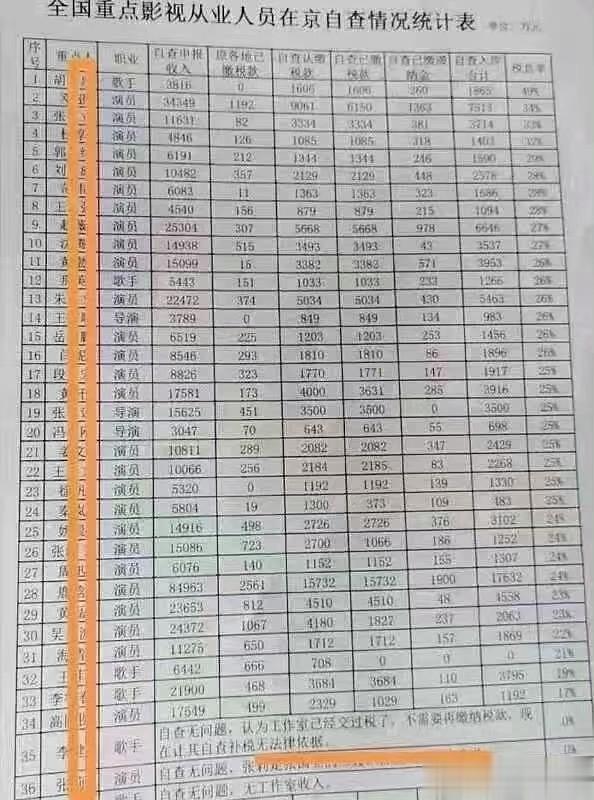 全国重点影视从业人员在京自查情况统计表 单位：万元
序号 重点人 职业 自查申报收入 原各地已缴税款 自查认缴税款 自查已缴税款 自查已缴滞纳金 自查入库合计 税负率
1 胡 歌手 3816 0 1606 1606 260 1865 49%
2 演员 34349 1192 9061 6150 1363 7513 34%
3 张 演员 11631 82 3334 3334 381 3714 33%
4 杜 演员 4846 126 1085 1085 318 1403 32%
5 郭 演员 6191 212 1344 1344 246 1590 29%
6 刘 演员 10482 357 2129 2129 448 2578 28%
7 演员 6083 11 1363 1363 323 1686 28%
8 王 演员 4540 156 879 879 215 1094 28%
9 赵 演员 25304 307 5668 5668 978 6646 27%
10 沈 演员 14938 515 3493 3493 43 3537 27%
11 黄 演员 15099 15 3382 3382 571 3953 26%
12 那 歌手 5443 151 1033 1033 233 1266 26%
13 朱 演员 22472 374 5034 5034 430 5463 26%
14 王 导演 3789 0 849 849 134 983 26%
15 岳 演员 6519 225 1203 1203 253 1456 26%
16 闫 演员 8546 293 1810 1810 86 1896 26%
17 段 演员 8826 323 1770 1771 147 1917 25%
18 黄 演员 17581 173 4000 3631 285 3916 25%
19 张 导演 15625 451 3500 3500 0 3500 25%
20 冯 导演 3047 70 643 643 55 698 25%
21 姜文 演员 10811 289 2082 2082 347 2429 25%
22 王 演员 10066 256 2184 2185 83 2268 25%
23 徐 演员 5320 0 1192 1192 139 1330 25%
24 秦 演员 5804 19 1300 373 109 483 25%
25 姚 演员 14916 498 2726 2726 376 3102 24%
26 张 演员 15086 723 2700 1066 186 1252 24%
27 周迅 演员 6076 140 1152 1152 155 1307 24%
28 演员 84963 2561 15732 15732 1900 17632 24%
29 黄 演员 23653 812 4510 4510 48 4558 23%
30 吴 演员 24372 1067 4180 1827 237 2063 23%
31 海 演员 11275 650 1712 1712 157 1869 22%
32 王 歌手 6442 666 708 0 0 0 21%
33 李 歌手 21900 468 3684 3684 110 3795 19%
34 高 演员 17549 499 2329 1029 163 1192 17%
35 李 歌手 自查无问题，认为工作室已经交过税了，不需要再缴纳税款，现在让其自查补税无法律依据。 0%
36 张 演员 自查无问题，无工作室收入。 0%